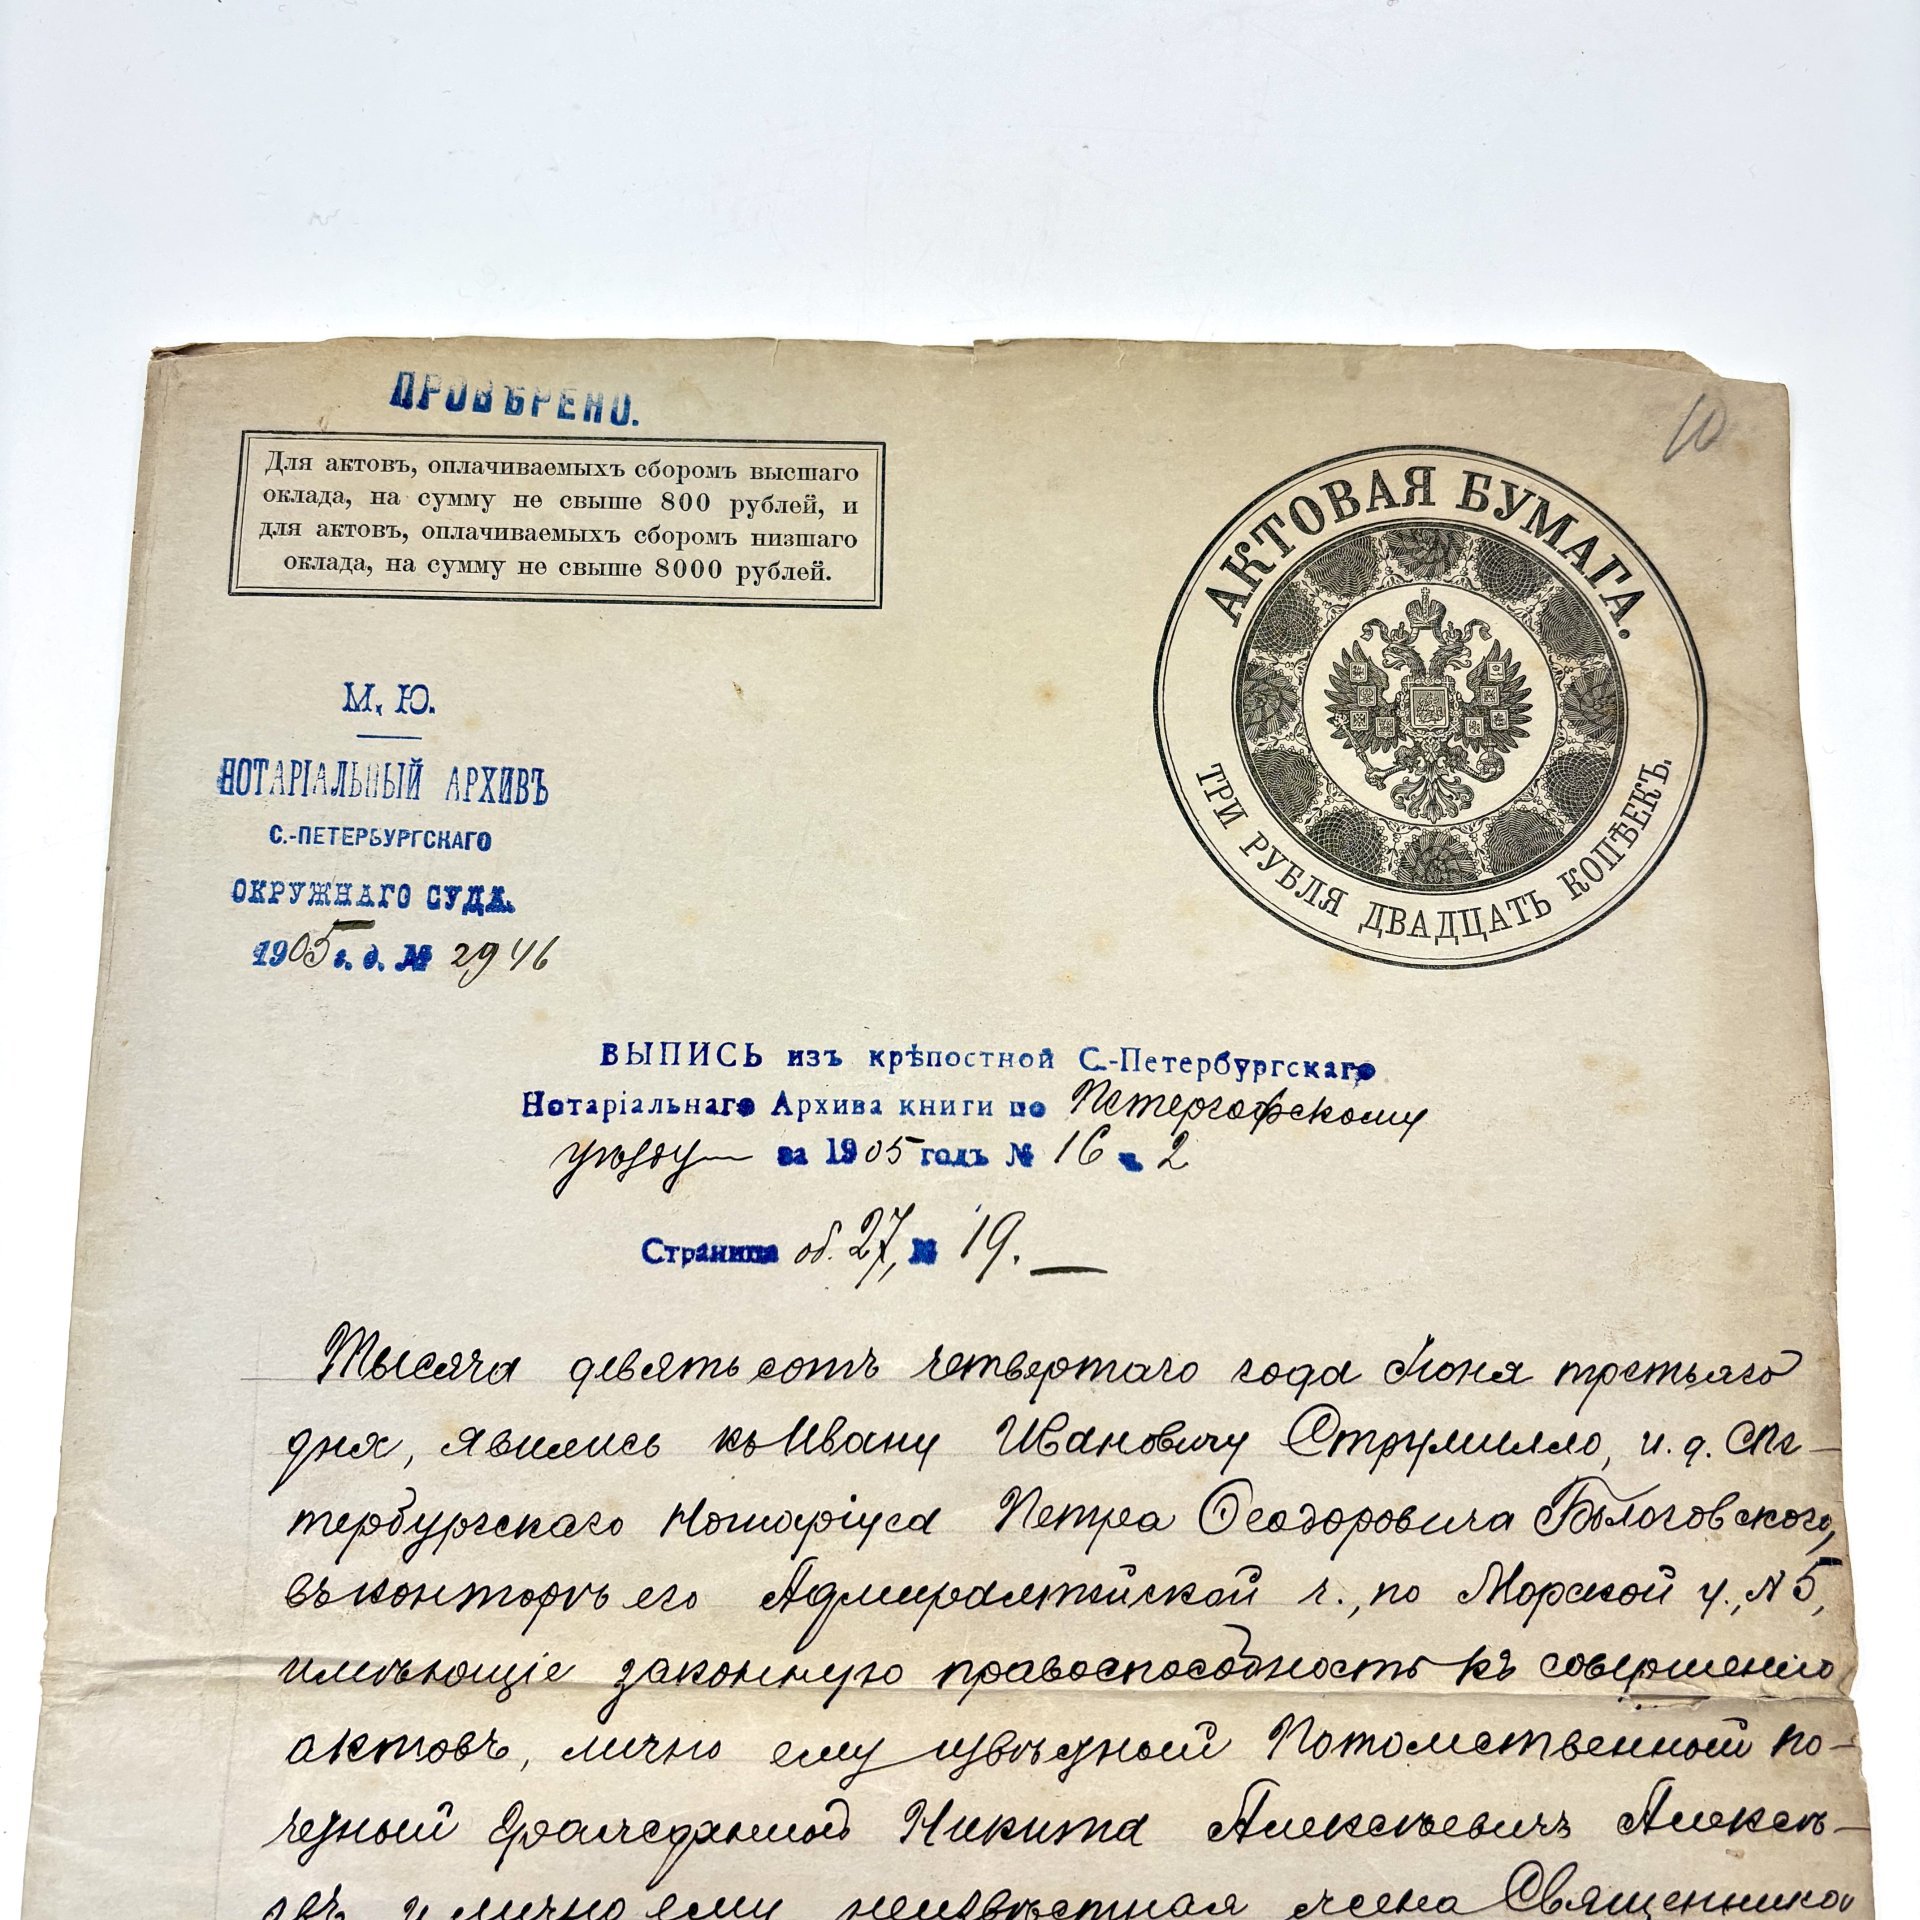 ПРОВѢРЕНО.
10
Для актовъ, оплачиваемыхъ сборомъ высшаго
оклада, на сумму не свыше 800 рублей, и
для актовъ, оплачиваемыхъ сборомъ низшаго
оклада, на сумму не свыше 8000 рублей.
АКТОВАЯ БУМАГА.
ТРИ РУБЛЯ ДВАДЦАТЬ КОПѢЕКЪ.
М. Ю.
НОТАРІАЛЬНЫЙ АРХИВЪ
С.-ПЕТЕРБУРГСКАГО
ОКРУЖНАГО СУДА.
1905 г. д. № 2946
ВЫПИСЬ изъ крѣпостной С.-Петербургскаго
Нотаріальнаго Архива книги по Петергофскому
уѣзду за 1905 годъ № 16 ч. 2
Страница об. 27, № 19.
Тысяча девятьсотъ четвертаго года Іюня третьяго
дня, явились къ Ивану Ивановичу Струмилло, и. д. СПе-
тербургскаго Нотаріуса Петра Ѳеодоровича Бологовского,
въ конторѣ его Адмиралтейской ч., по Морской у., № 5,
имѣющіе законную правоспособность къ совершенію
актовъ, лично ему извѣстный Потомственный по-
четный Гражданинъ Никита Алексѣевичъ Алексѣ-
евъ и лично ему неизвѣстная жена Священника